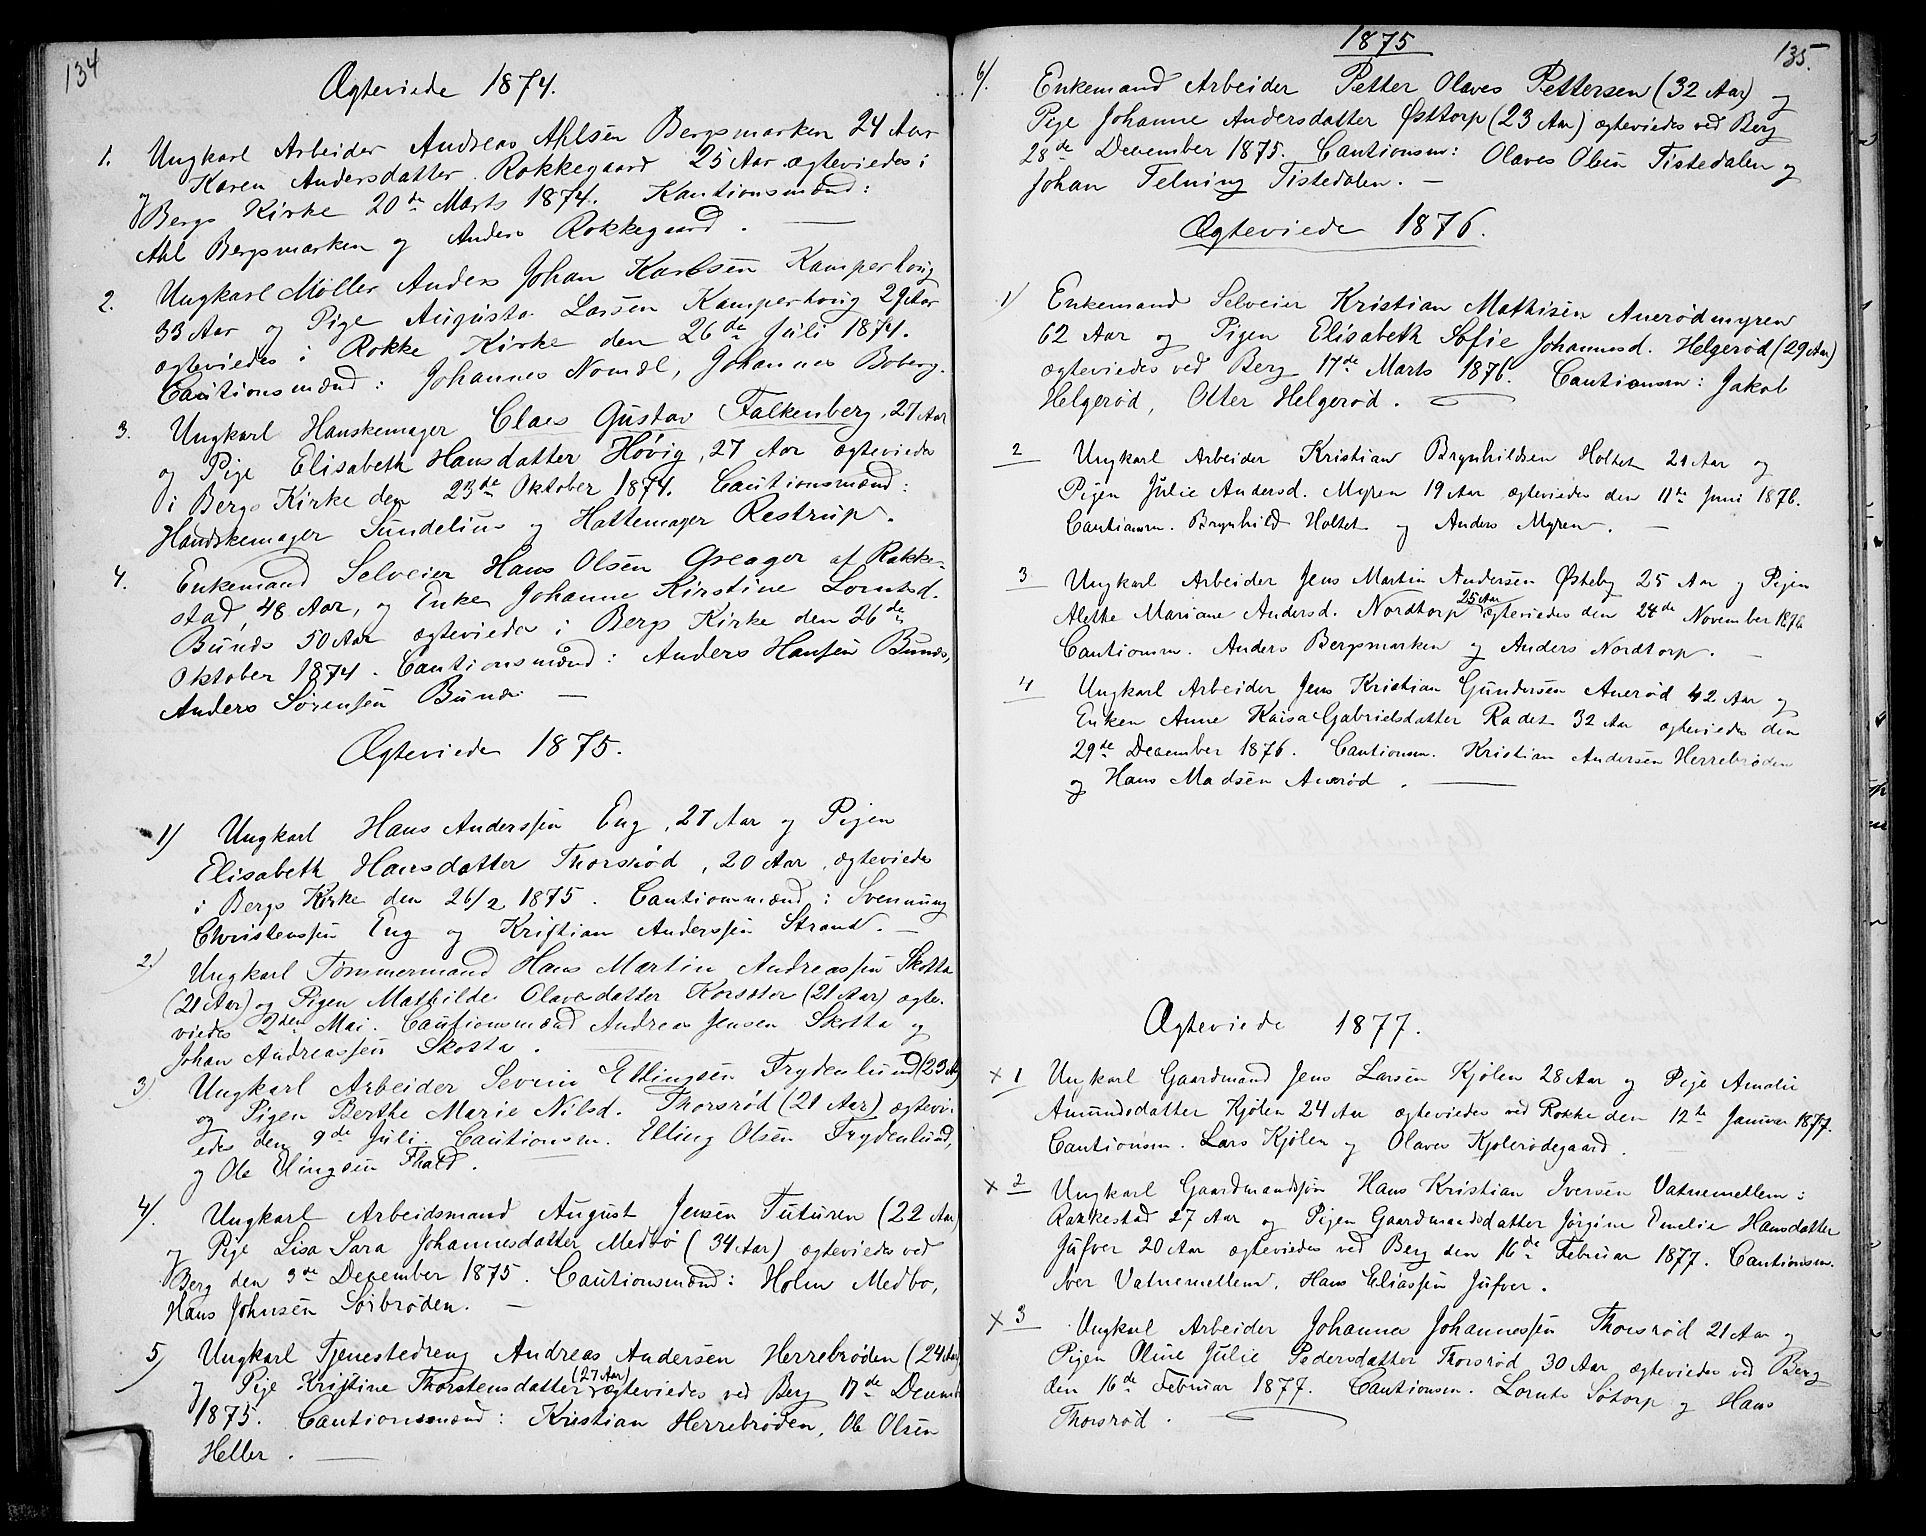 134
Ægteviede 1874.
1. Ungkarl Arbeider Andreas Ahlsen Bergsmarken 24 Aar
og Karen Andersdatter Rokkegaard 25 Aar ægteviedes i
Bergs Kirke 20de Marts 1874. Kautionsmænd:
Ahl Bergsmarken og Anders Rokkegaard.
2. Ungkarl Møller Anders Johan Karlsen Kamperhoug
33 Aar og Pige Augusta Lassen Kamperhoug 29 Aar
ægteviedes i Rokke Kirke den 26de Juli 1874.
Cautionsmænd: Johannes Nomæl, Johannes Boberg.
3. Ungkarl Hanskemager Claes Gustav Falkenberg, 27 Aar
og Pige Elisabeth Hansdatter Høvig, 27 Aar ægteviedes
i Bergs Kirke den 23de Oktober 1874. Cautionsmænd:
Handskemager Sundelius og Hattemager Restrup.
4. Enkemand Selveier Hans Olsen Greager af Rakke-
stad, 48 Aar, og Enke Johanne Kirstine Lorntsd.
Bunds 50 Aar ægteviedes i Bergs Kirke den 26de
Oktober 1874. Cautionsmænd: Anders Hansen Bunds,
Anders Sørensen Bunds. —
Ægteviede 1875.
1) Ungkarl Hans Anderssen Eng, 27 Aar og Pigen
Elisabeth Hansdatter Thorsrød, 20 Aar, ægteviedes
i Bergs Kirke den 26/2 1875. Cautionsmænd: Svennung
Christenssen Eng og Kristian Anderssen Strand. —
2) Ungkarl Tømmermand Hans Martin Andreassen Skotta
(21 Aar) og Pigen Mathilde Olavesdatter Korsæter (21 Aar) ægte-
viedes 2den Mai. Cautionsmænd Andreas Jensen Skotta og
Johan Andreassen Skotta.
3) Ungkarl Arbeider Severin Ellingsen Frydenlund (23 A
og Pigen Berthe Marie Nilsd. Thorsrød (21 Aar) ægtevi-
edes den 9de Juli. Cautionsm. Elling Olsen Frydenlund,
og Ole Elingsen
4). Ungkarl Arbeidsmand August Jensen Tuturen (22 Aar
og Pige Lisa Sara Johannesdatter Medbø (34 Aar) ægteviedes ved
Berg den 3de December 1875. Cautionsmænd: Holm Medbo,
Hans Johnsen Sørbrøden. —
5) Ungkarl Tjenestedreng Andreas Andersen Herrebrøden (24 Aar)
og Pige Kristine Thorstensdatter (27 Aar) ægteviedes ved Berg 17de Decemb
1875. Cautionsmænd: Kristian Herrebrøden, Ole Olsen
Heller. —
1875
135.
6). Enkemand Arbeider Petter Olaves Pettersen (32 Aar) og
Pige Johanne Andersdatter Østtorp (23 Aar) ægteviedes ved Berg
28de December 1875. Cautionsm: Olaves Olsen Tistedalen og
Johan Telning Tistedalen. —
Ægteviede 1876.
1) Enkemand Selveier Kristian Mathisen Auerødmyren
62 Aar og Pigen Elisabeth Sofie Johannesd. Helgerød (29 Aar)
ægteviedes ved Berg 17de Marts 1876. Cautionsm: Jakob
Helgerød, Otter Helgerød.
2 Ungkarl Arbeider Kristian Brynhildsen Holtet 21 Aar og
Pigen Julie Andersd. Myren 19 Aar ægteviedes den 11te Juni 1876.
Cautionsm. Brynhild Holtet og Anders Myren. —
3 Ungkarl Arbeider Jens Martin Andersen Østeby 25 Aar og Pigen
Alethe Mariane Andersd. Nordtorp 25 Aar ægteviedes den 24de November 1876
Cautionsm. Anders Bergsmarken og Anders Nordtorp. —
4 Ungkarl Arbeider Jens Kristian Gundersen Auerød 42 Aar og
Enken Anne Kaisa Gabrielsdatter Radet 32 Aar ægteviedes den
29de December 1876. Cautionsm. Kristian Andersen Herrebrøden
og Hans Madsen Auerød. —
Ægteviede 1877.
x 1 Ungkarl Gaardmand Jens Larsen Kjølen 28 Aar og Pige Amalie
Amundsdatter Kjølen 24 Aar ægteviedes ved Rokke den 12te Januar 1877.
Cautionsm. Lars Kjølen og Olaves Kjølerødegaard.
x 2 Ungkarl Gaardmandssøn Hans Kristian Iversen Vatnemellem i
Rakkestad 27 Aar og Pigen Gaardmandsdatter Jørgine Emelie Hansdatter
Jufver 20 Aar ægteviedes ved Berg den 16de Februar 1877. Cautionsm.
Iver Vatnemellem, Hans Eliassen Jufver.
x 3 Ungkarl Arbeider Johannes Johannessen Thorsrød 21 Aar og
Pigen Oline Julie Pedersdatter Thorsrød 30 Aar ægteviedes ved Berg
den 16de Februar 1877. Cautionsm. Lornts Søtorp og Hans
Thorsrød.